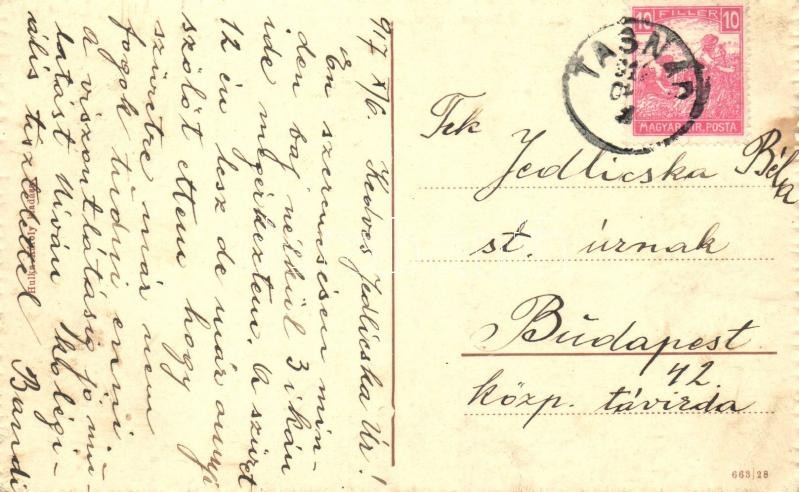 917 X/6. Kedves Jedlicska Úr!
Én szerencsésen min-
den baj nélkül 3 ikán
ide megérkeztem. A szüret
12 én lesz de már annyi
szőlőt ettem hogy
szüretre már nem
fogok tudni enni
a viszontlátásig jó mu-
latást kiván kollégi-
ális tisztelettel
Bandi
Hulka Károly kiadása
10 FILLER 10
MAGYAR KIR. POSTA
TASNÁD
Tek
Jedlicska Béla
st. úrnak
Budapest
42.
közp. távirda
663|28